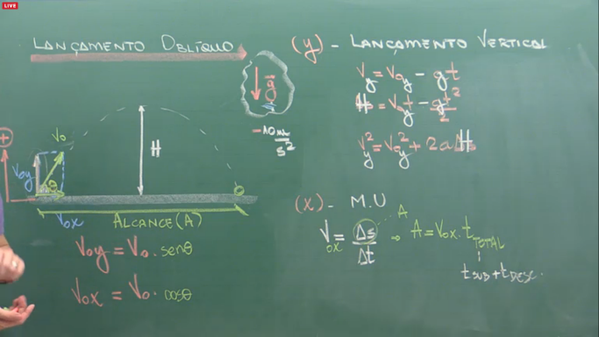 LIVE
LANÇAMENTO OBLÍQUO
g
-10 m/s²
+
V₀
V₀y
θ
H
V₀x
ALCANCE (A)
V₀y = V₀ · senθ
V₀x = V₀ · cosθ
(y) - LANÇAMENTO VERTICAL
Vy = V₀y - gt
H = V₀yt - gt²/2
Vy² = V₀y² + 2a H
(x) - M.U
V₀x = Δs/Δt → A = V₀x · t TOTAL
A
t SUB + t DESC.